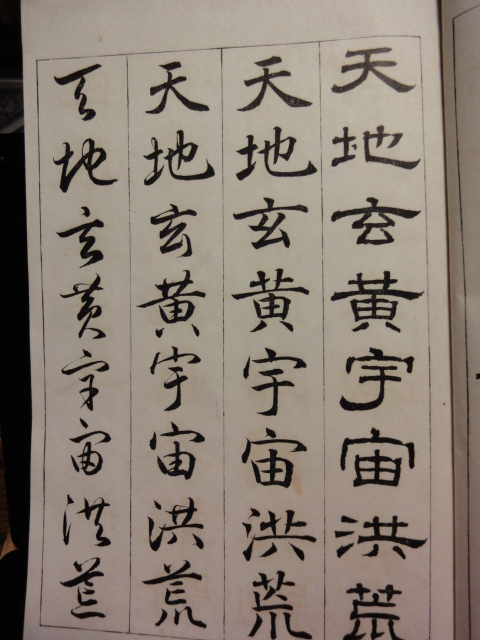 天地玄黄宇宙洪荒
天地玄黄宇宙洪荒
天地玄黄宇宙洪荒
天地玄黄宇宙洪荒